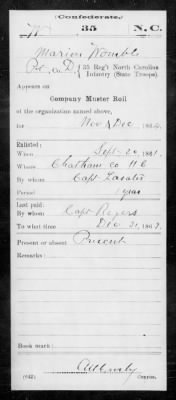 (Confederate.)
W 35 N.C.
Marion Womble
Pvt, Co. D, 35 Reg't North Carolina
Infantry (State Troops).
Appears on
Company Muster Roll
of the organization named above,
for Nov & Dec, 1862.
Enlisted:
When Sept. 20, 1861.
Where Chatham Co N C
By whom Capt Lasater
Period 1 year
Last paid:
By whom Capt Rogers
To what time Dec 31, 1862.
Present or absent Present
Remarks:
Book mark:
(642) Copyist.